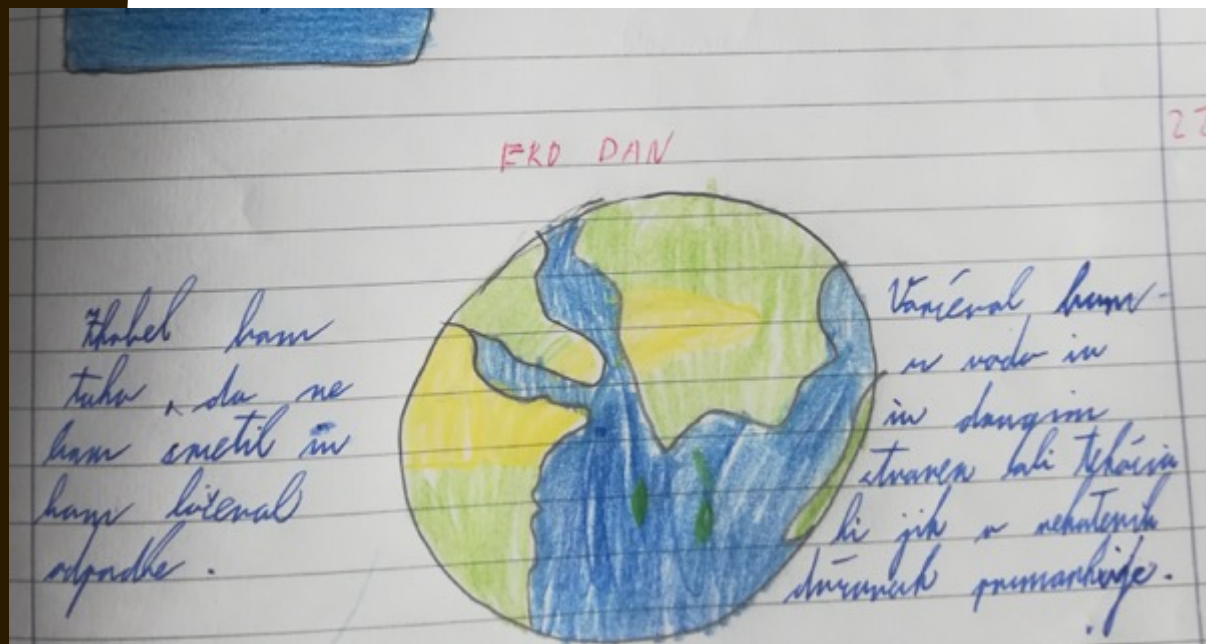 EKO DAN
22
Skabel bom
tako, da ne
bom smetil in
bom ločeval
odpadke.
Varčeval bom
z vodo in
in drugim
stvareh tekočin
ki jih v nekaterih
državah primankuje.